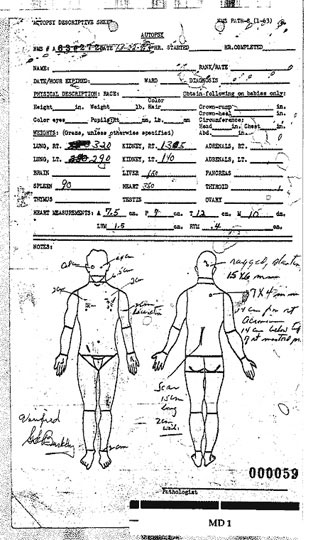 AUTOPSY DESCRIPTIVE SHEET NMS PATH-8 (1-63)
AUTOPSY
NMS # DATE HR. STARTED HR. COMPLETED
NAME: RANK/RATE
DATE/HOUR EXPIRED: WARD DIAGNOSIS
PHYSICAL DESCRIPTION: RACE: Obtain following on babies only:
Color
Height in. Weight lb. Hair Crown-rump in.
Crown-heel in.
Color eyes Pupils:Rt mm, Lt. mm Circumference:
Head in. Chest in.
Abd. in.
WEIGHTS: (Grams, unless otherwise specified)
LUNG, RT. 320 KIDNEY, RT. 130 ADRENALS, RT.
LUNG, LT. 290 KIDNEY, LT. 140 ADRENALS, LT.
BRAIN LIVER 650 PANCREAS
SPLEEN 90 HEART 350 THYROID
THYMUS TESTIS OVARY
HEART MEASUREMENTS: A 7.5 cm. P 7 cm. T 12 cm. M 10 cm.
LVM 1.5 cm. RVM .4 cm.
NOTES:
ragged, slanting
15 X 6 mm
7 X 4 mm
14 cm from rt
acromion
14 cm below tip
of rt mastoid process
Scar
15 cm
long
2 cm
wide
Verified
GG Burkley
000059
Pathologist
MD 1